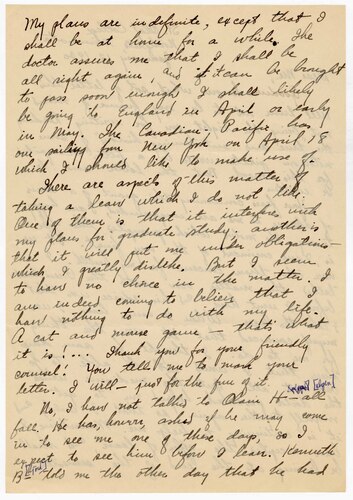 My plans are indefinite, except that I
shall be at home for a while. The
doctor assures me that I shall be
all right again, and if it can be brought
to pass soon enough I shall likely
be going to England in April or early
in May. The Canadian-Pacific has
one sailing from New York on April 18
which I should like to make use of.
There are aspects of this matter of
taking a leave which I do not like.
One of them is that it interferes with
my plans for graduate study. another is
that it will put me under obligations—
which I greatly dislike. But I seem
to have no choice in the matter. I
am indeed coming to believe that I
have nothing to do with my life.
A cat and mouse game - that's what
it is!... Thank you for your friendly
counsel! You tell me to mark your
letter. I will - just for the fun of it.
No, I have not talked to Olam H— all
fall. He has, however, asked if he may come
in to see me one of these days, so I
expect to see him before I leave. Kenneth
B— told me the other day that he had